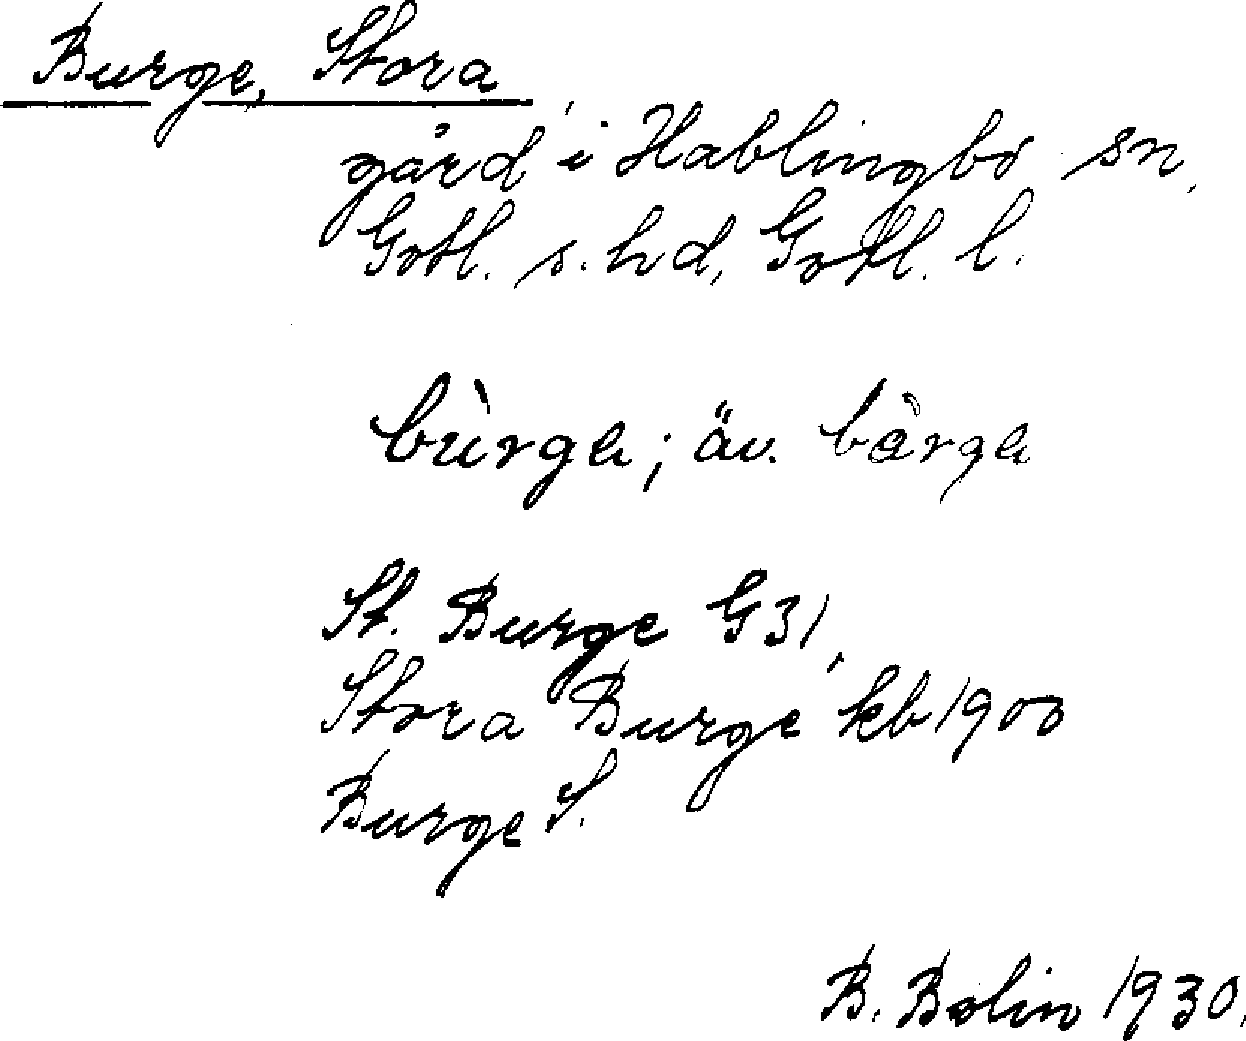 Burge, Stora
gård i Hablingbo sn,
Gotl. s. hd, Gotl. l.
bùrga; äv. bàrga
St. Burge G 31,
Stora Burge kb 1900
Burge S.
B. Bolin 1930.